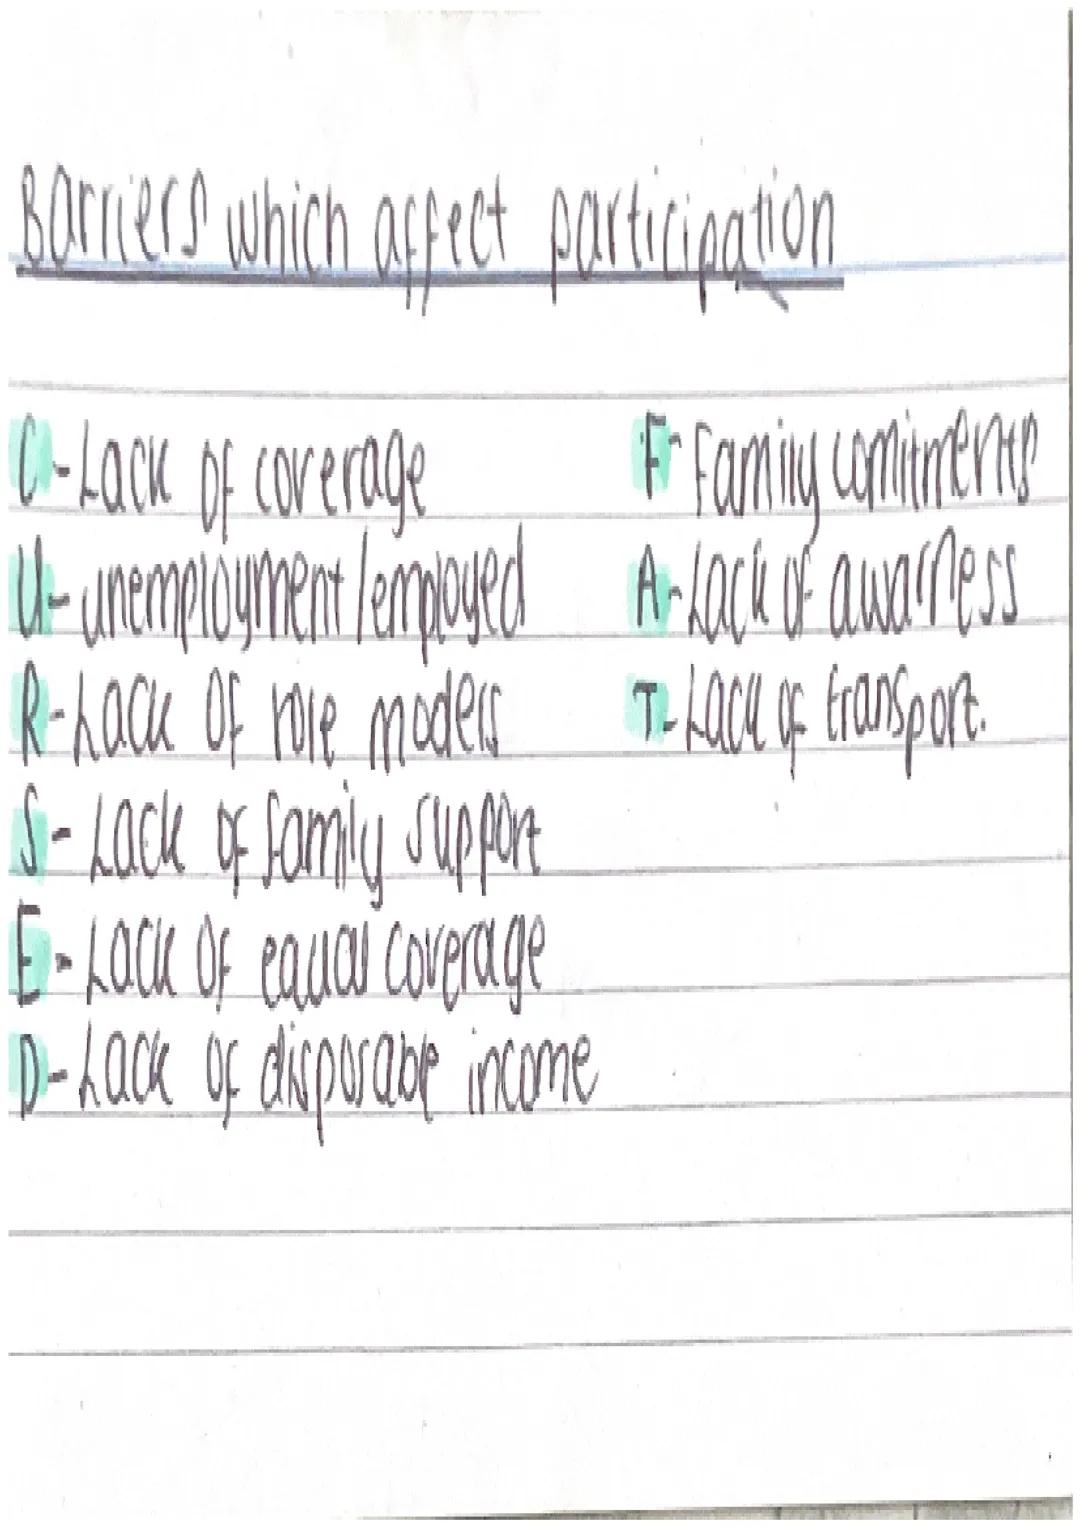 Barriers which affect participation
C - Lack of coverage
U - unemployment / employed
R - Lack of role models
S - Lack of family support
E - Lack of equal coverage
D - Lack of disposable income
F - Family comitments
A - Lack of awarness
T - Lack of transport.